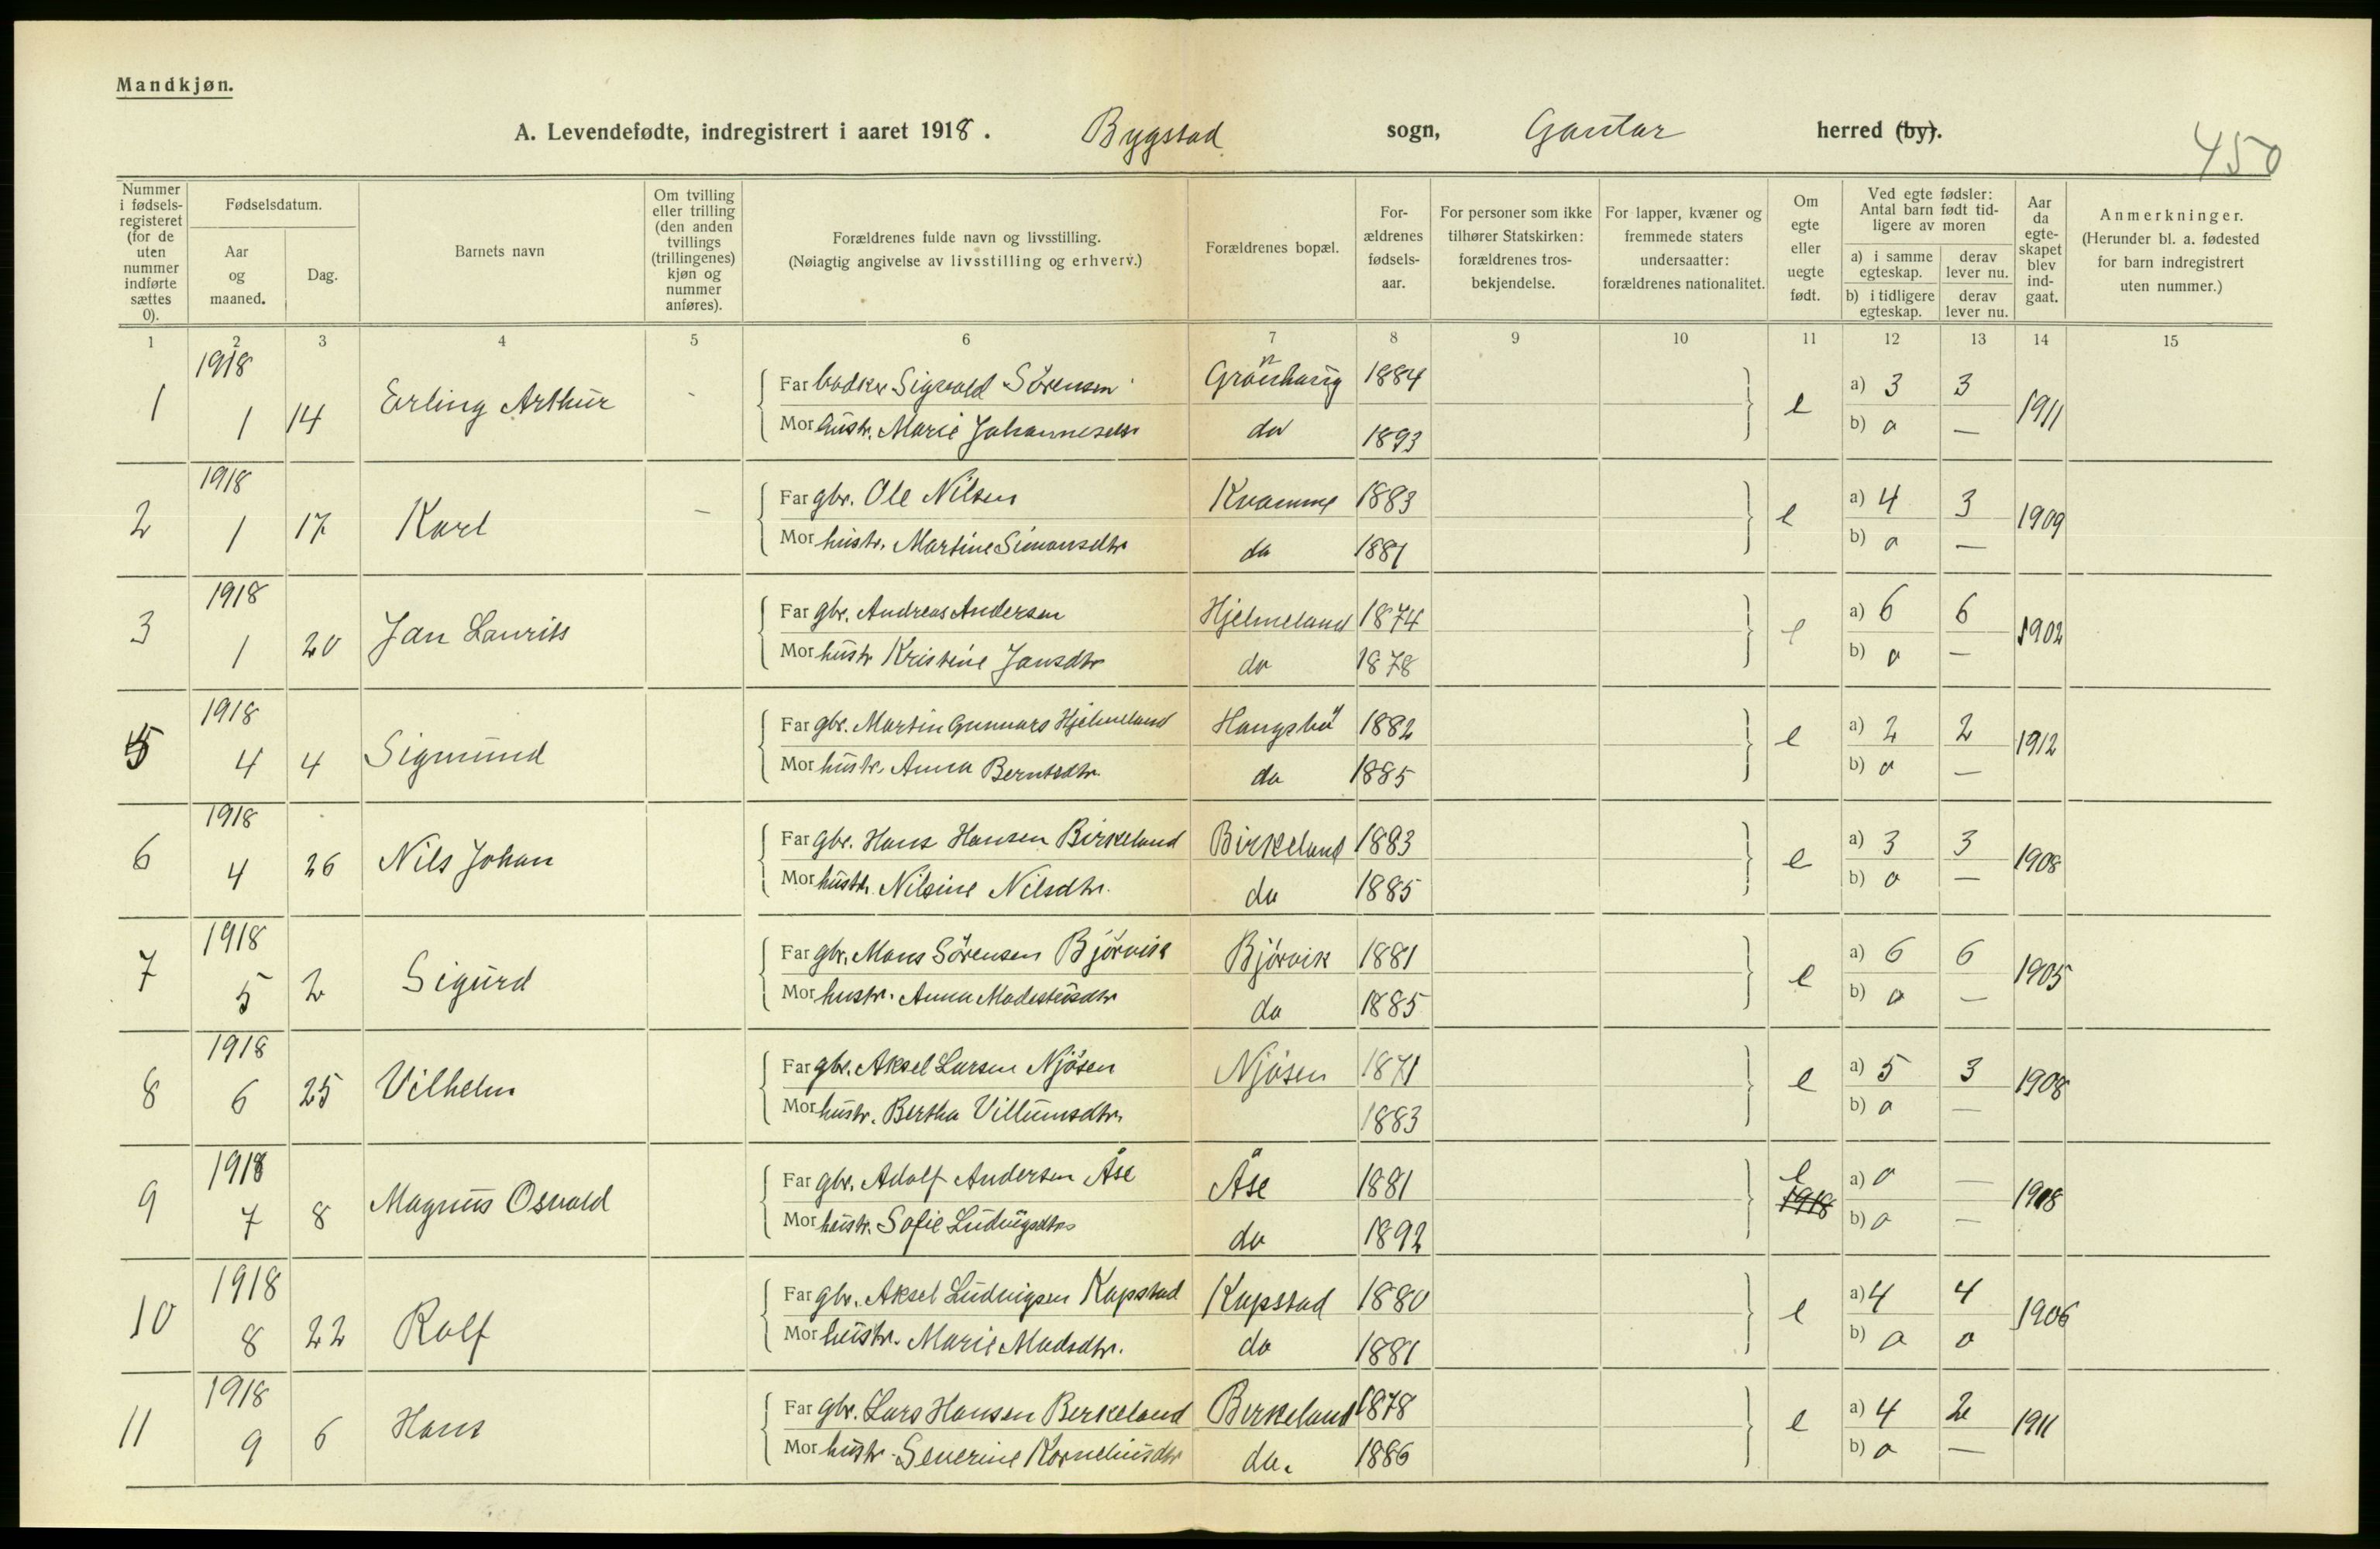 Mandkjøn.
A. Levendefødte, indregistrert i aaret 1918. Bygstad sogn, Gaular herred (by).
450
Nummer i fødsels-registeret (for de uten nummer indførte sættes 0).
Fødselsdatum.
Aar og maaned.
Dag.
Barnets navn
Om tvilling eller trilling (den anden tvillings (trillingenes) kjøn og nummer anføres).
Forældrenes fulde navn og livsstilling.
(Nøiagtig angivelse av livsstilling og erhverv.)
Forældrenes bopæl.
For-ældrenes fødsels-aar.
For personer som ikke tilhører Statskirken: forældrenes tros-bekjendelse.
For lapper, kvæner og fremmede staters undersaatter: forældrenes nationalitet.
Om egte eller uegte født.
Ved egte fødsler: Antal barn født tid-ligere av moren
a) i samme egteskap.
derav lever nu.
b) i tidligere egteskap.
derav lever nu.
Aar da egte-skapet blev ind-gaat.
Anmerkninger.
(Herunder bl. a. fødested for barn indregistrert uten nummer.)
1 2 3 4 5 6 7 8 9 10 11 12 13 14 15
1 1918 1 14 Erling Arthur - Far bødker Sigvald Sörensen Grönhaug 1884 e a) 3 3 1911
Mor hustr. Marie Johannesdtr do 1893 b) o —
2 1918 1 17 Karl - Far gbr. Ole Nilsen Kvamme 1883 e a) 4 3 1909
Mor hustr. Martine Simonsdtr do 1881 b) o —
3 1918 1 20 Jan Laurits Far gbr. Andreas Andersen Hjelmeland 1874 e a) 6 6 1902
Mor hustr Kristine Jansdtr do 1878 b) o —
5 1918 4 4 Sigmund Far gbr. Martin Gunnars Hjelmeland 1882 e a) 2 2 1912
Mor hustr. Anna Berntsdtr. do 1885 b) o —
6 1918 4 26 Nils Johan Far gbr. Hans Hansen Birkeland Birkeland 1883 e a) 3 3 1908
Mor hustr. Nilsine Nilsdtr. do 1885 b) o —
7 1918 5 2 Sigurd Far gbr. Mons Sörensen Björvik Björvik 1881 e a) 6 6 1905
Mor hustr. Anna Madsdtr do 1885 b) o —
8 1918 6 25 Vilhelm Far gbr. Aksel Larsen Njösen Njösen 1871 e a) 5 3 1908
Mor hustr. Bertha Villumsdtr. 1883 b) o —
9 1918 7 8 Magnus Osvald Far gbr. Adolf Andersen Åse Åse 1881 e 1918 a) o — 1918
Mor hustr. Sofie Ludvigsdtr do 1892 b) o —
10 1918 8 22 Rolf Far gbr. Aksel Ludvigsen Kapstad Kapstad 1880 e a) 4 4 1906
Mor hustr. Marie Madsdtr. do 1881 b) o o
11 1918 9 6 Hans Far gbr. Lars Hansen Berkeland Berkeland 1878 e a) 4 2 1911
Mor hustr. Severine Korneliusdtr do. 1886 b) o —